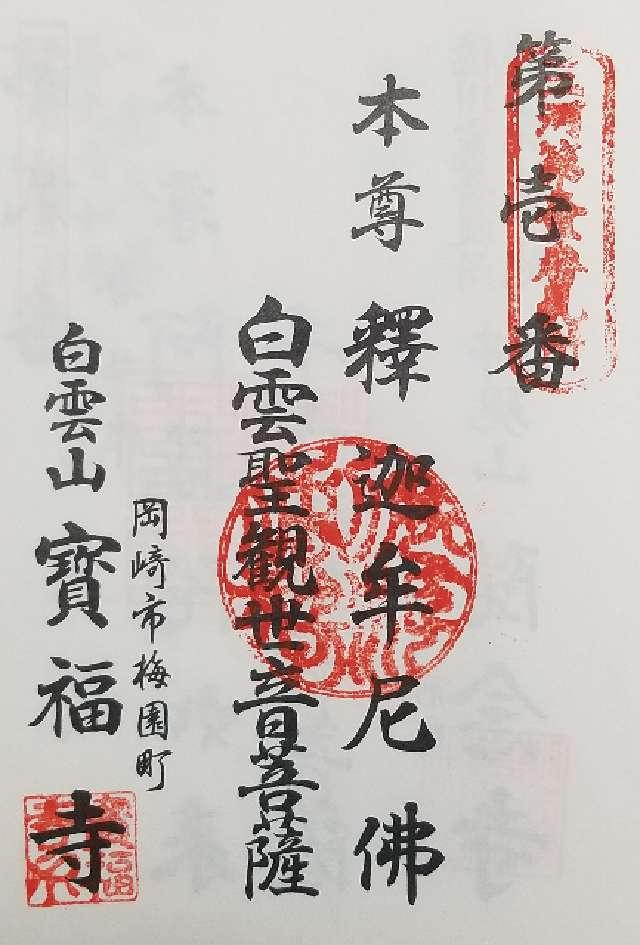 第壱番
本尊 釋迦牟尼佛
白雲聖観世音菩薩
岡崎市梅園町
白雲山 寶福寺